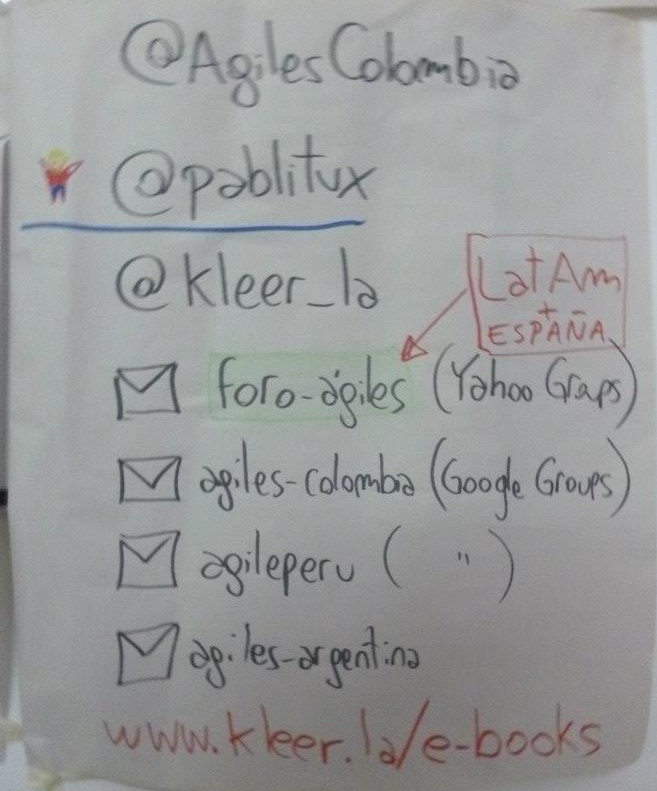 @AgilesColombia
@pablitux
@kleer_la
LatAm
+
ESPAÑA
foro-ágiles (Yahoo Graps)
agiles-colombia (Google Groups)
agileperu ( " )
agiles-argentina
www.kleer.la/e-books